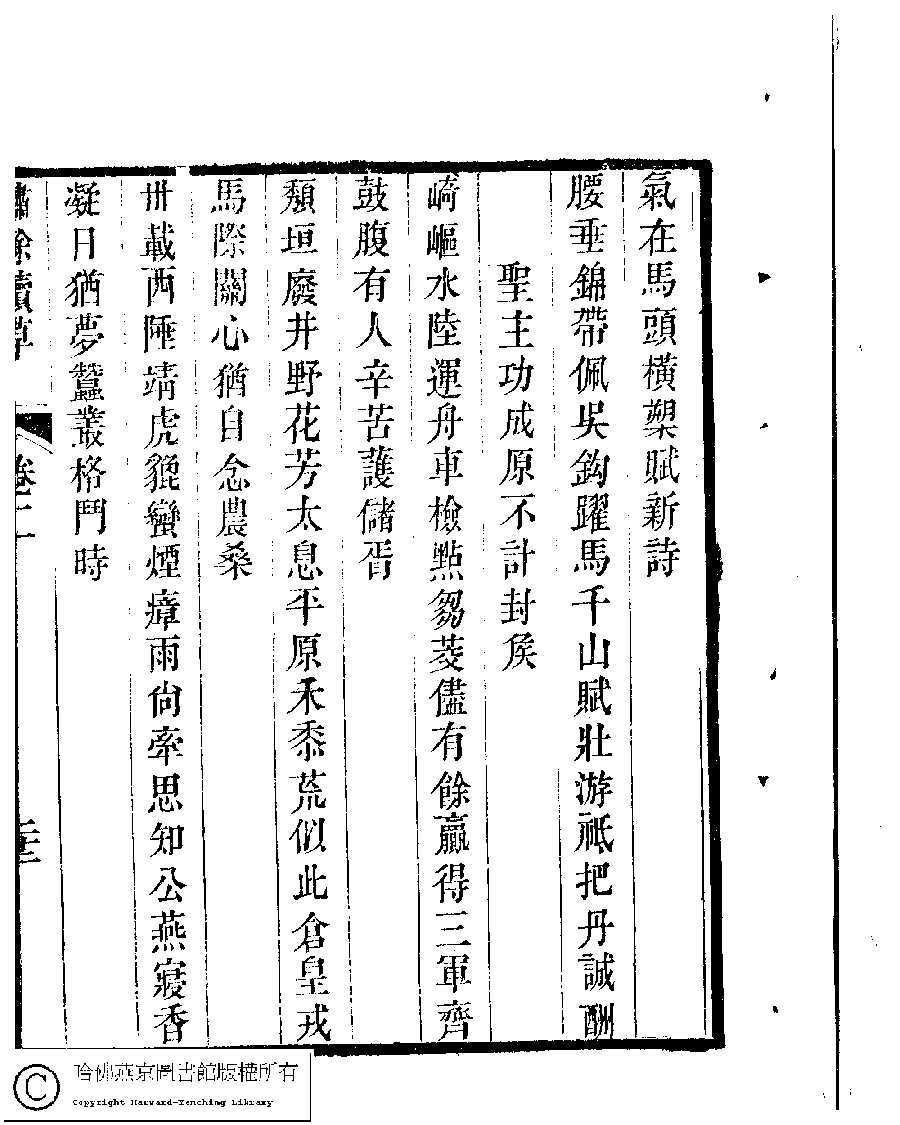 氣在馬頭橫槊賦新詩
腰垂錦帶佩吳鈎躍馬千山賦壯游祗把丹誠酬
聖主功成原不計封侯
崎嶇水陸運舟車檢點芻茭儘有餘贏得三軍齊
鼓腹有人辛苦護儲胥
頹垣廢井野花芳太息平原禾黍荒似此倉皇戎
馬際關心猶自念農桑
卅載西陲靖虎貔蠻煙瘴雨尙牽思知公燕寢香
凝日猶夢蠶叢格鬥時
餘續草
卷二
二十三
哈佛燕京圖書館版權所有
Copyright Harvard-Yenching Library